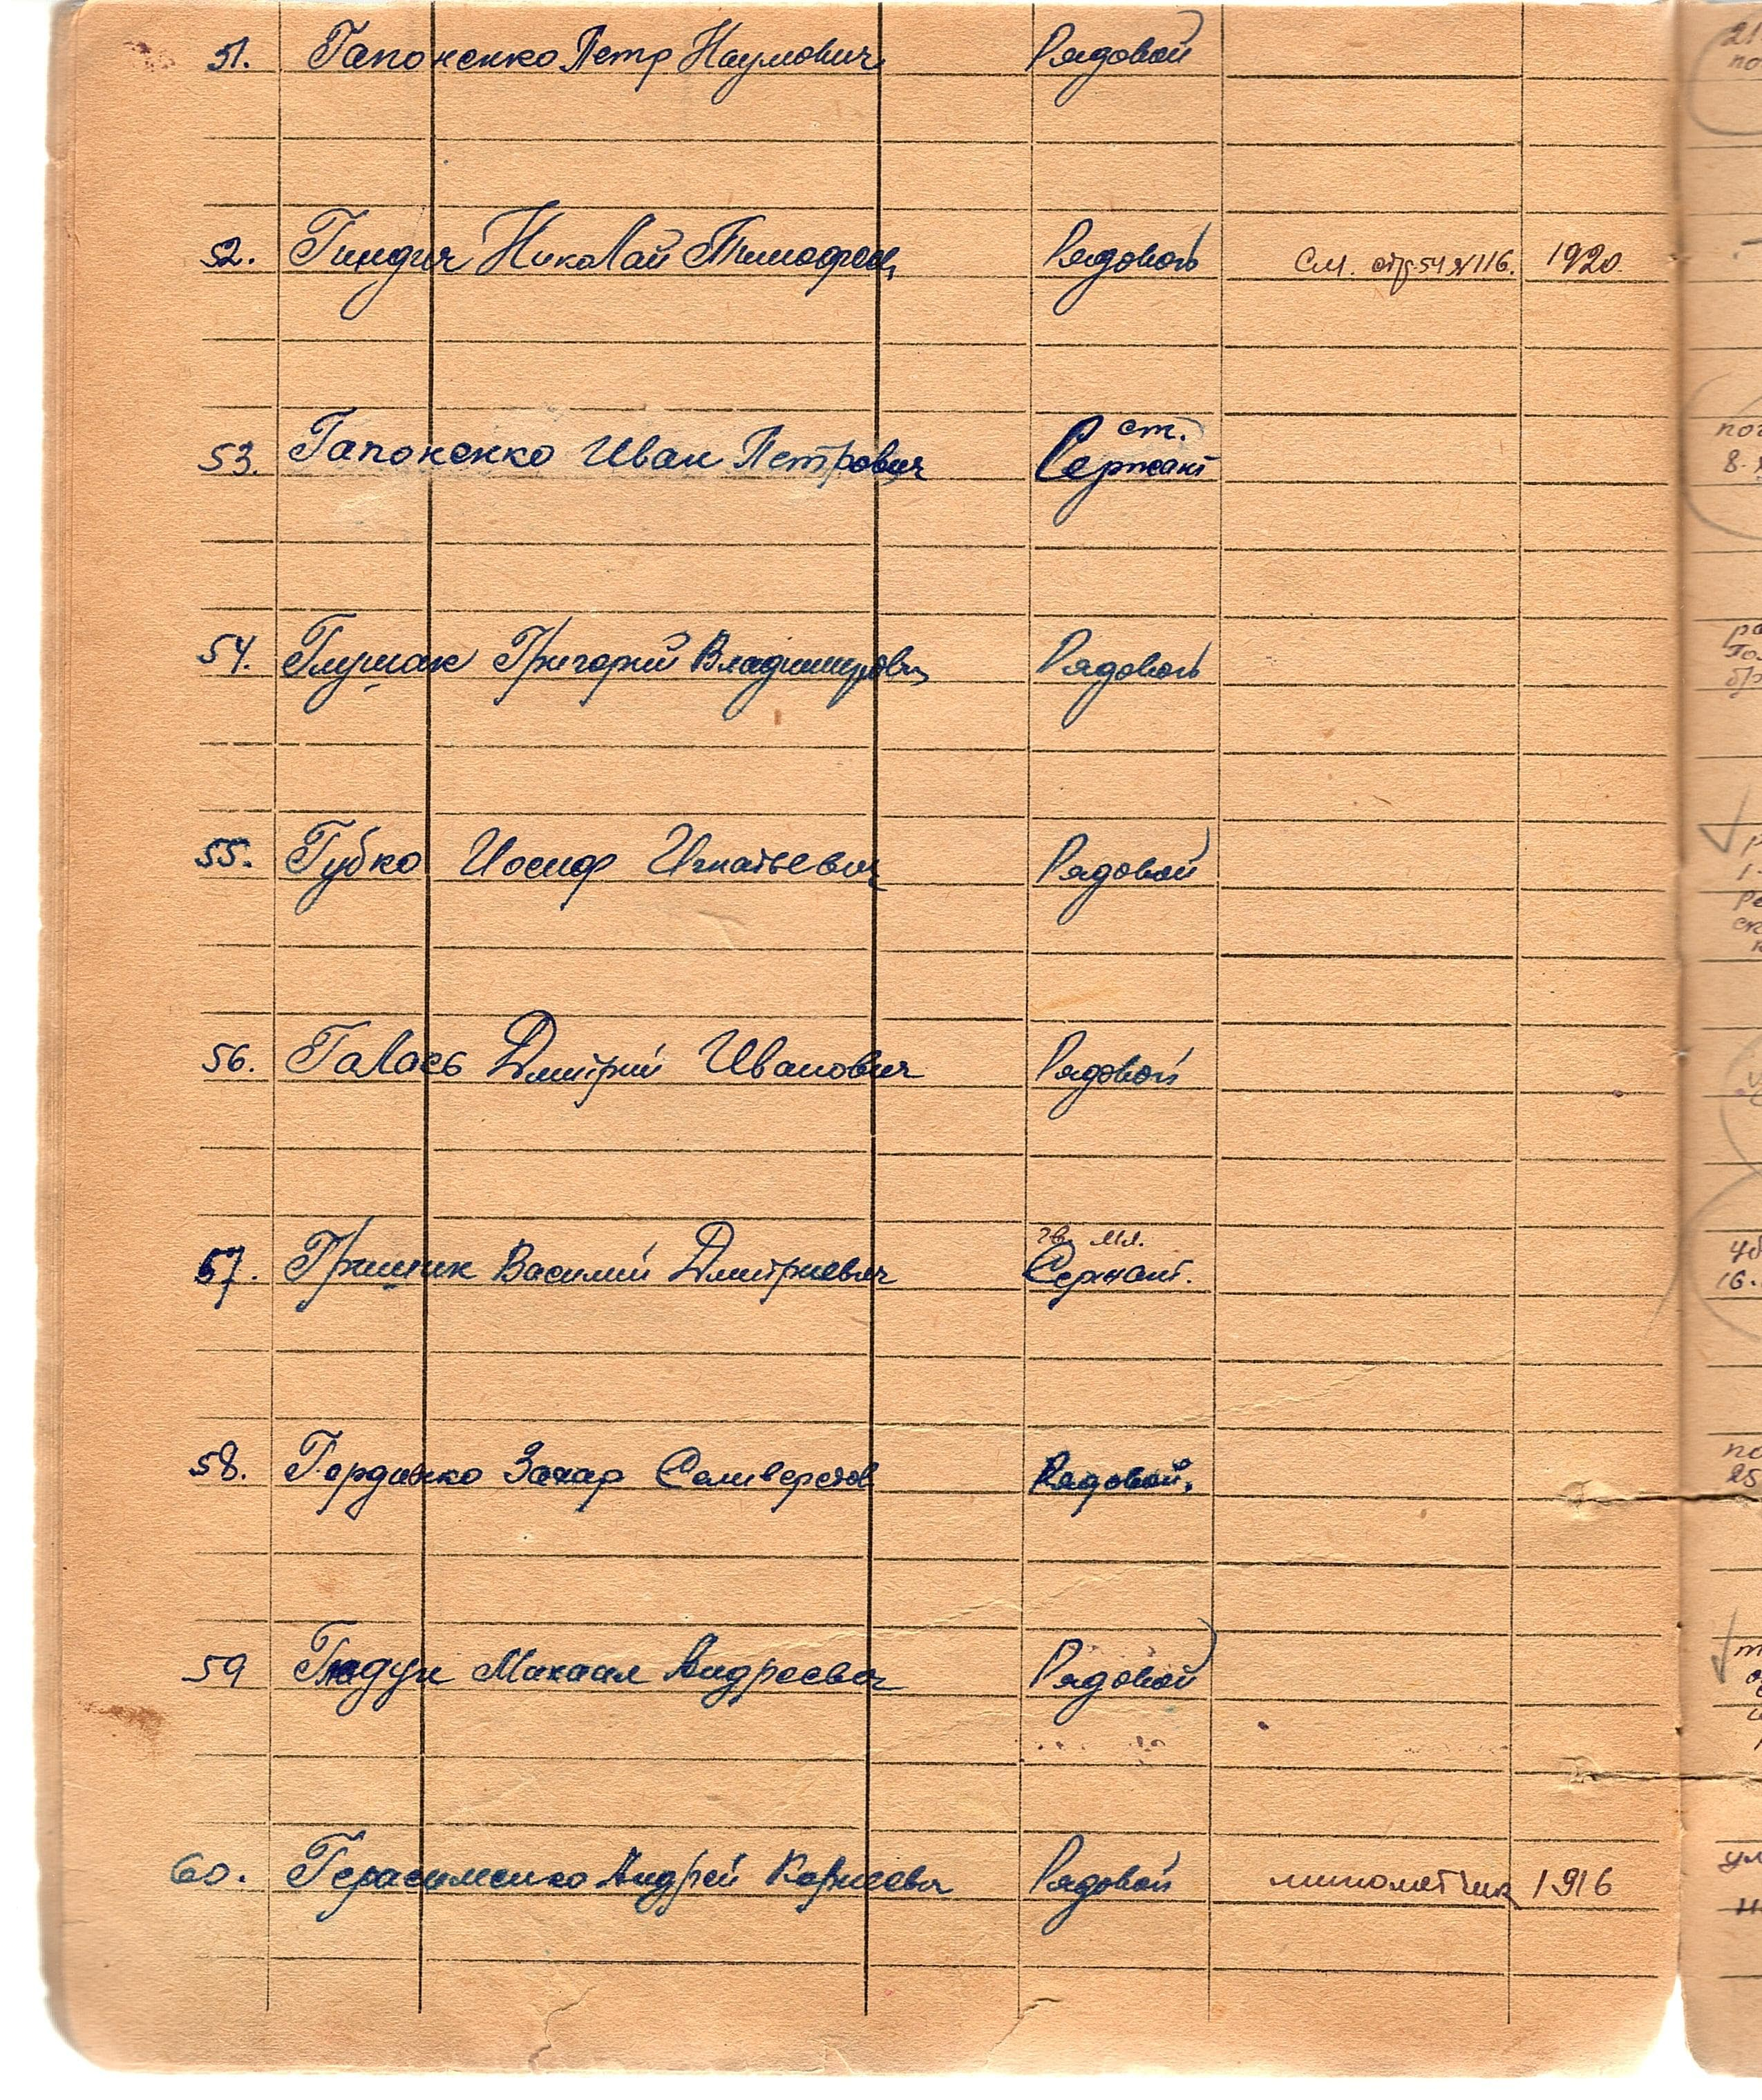 51. Гапоненко Петр Наумович Рядовой
52. Гиндич Николай Тимофеев Рядовой см. стр. 54 №116. 1920
53. Гапоненко Иван Петрович ст. Сержант
54. Григорий Владимирович Рядовой
55. Губко Иосиф Игнатьевич Рядовой
56. Галась Дмитрий Иванович Рядовой
57. Гришник Василий Дмитриевич гв. мл. Сержант.
58. Гордиенко Захар Селиверстов Рядовой.
59 Михаил Андреевич Рядовой
60. Герасименко Андрей Корнеевич Рядовой минометчик 1916